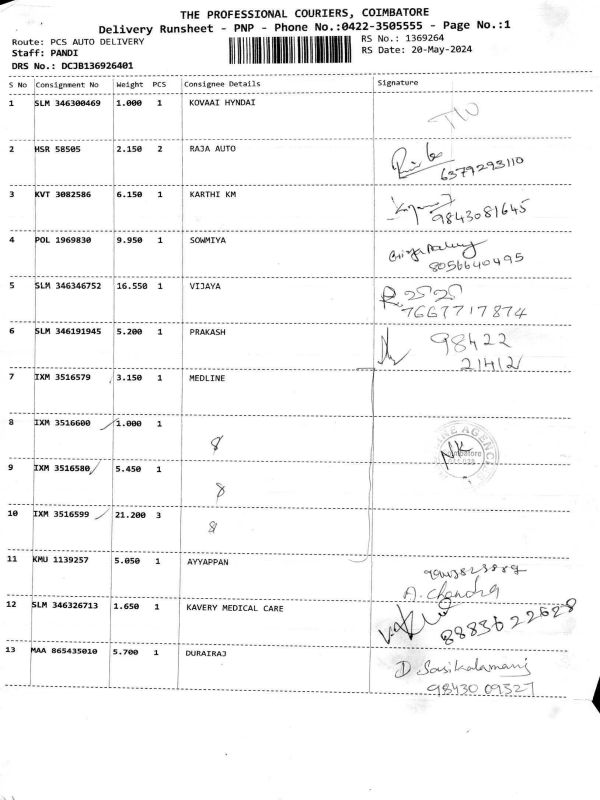 THE PROFESSIONAL COURIERS, COIMBATORE
Delivery Runsheet - PNP - Phone No.:0422-3505555 - Page No.:1
Route: PCS AUTO DELIVERY RS No.: 1369264
Staff: PANDI RS Date: 20-May-2024
DRS No.: DCJB136926401
S No Consignment No Weight PCS Consignee Details Signature
1 SLM 346300469 1.000 1 KOVAAI HYNDAI
2 HSR 58505 2.150 2 RAJA AUTO
6379293110
3 KVT 3082586 6.150 1 KARTHI KM
9843081645
4 POL 1969830 9.950 1 SOWMIYA
8056640495
5 SLM 346346752 16.550 1 VIJAYA
7667717874
6 SLM 346191945 5.200 1 PRAKASH 98422
21412
7 IXM 3516579 3.150 1 MEDLINE
8 IXM 3516600 1.000 1
9 IXM 3516580 5.450 1
10 IXM 3516599 21.200 3
11 KMU 1139257 5.050 1 AYYAPPAN
A. Chandra
12 SLM 346326713 1.650 1 KAVERY MEDICAL CARE 8883622628
13 MAA 865435010 5.700 1 DURAIRAJ
D. Sasikalamani
98430 09327